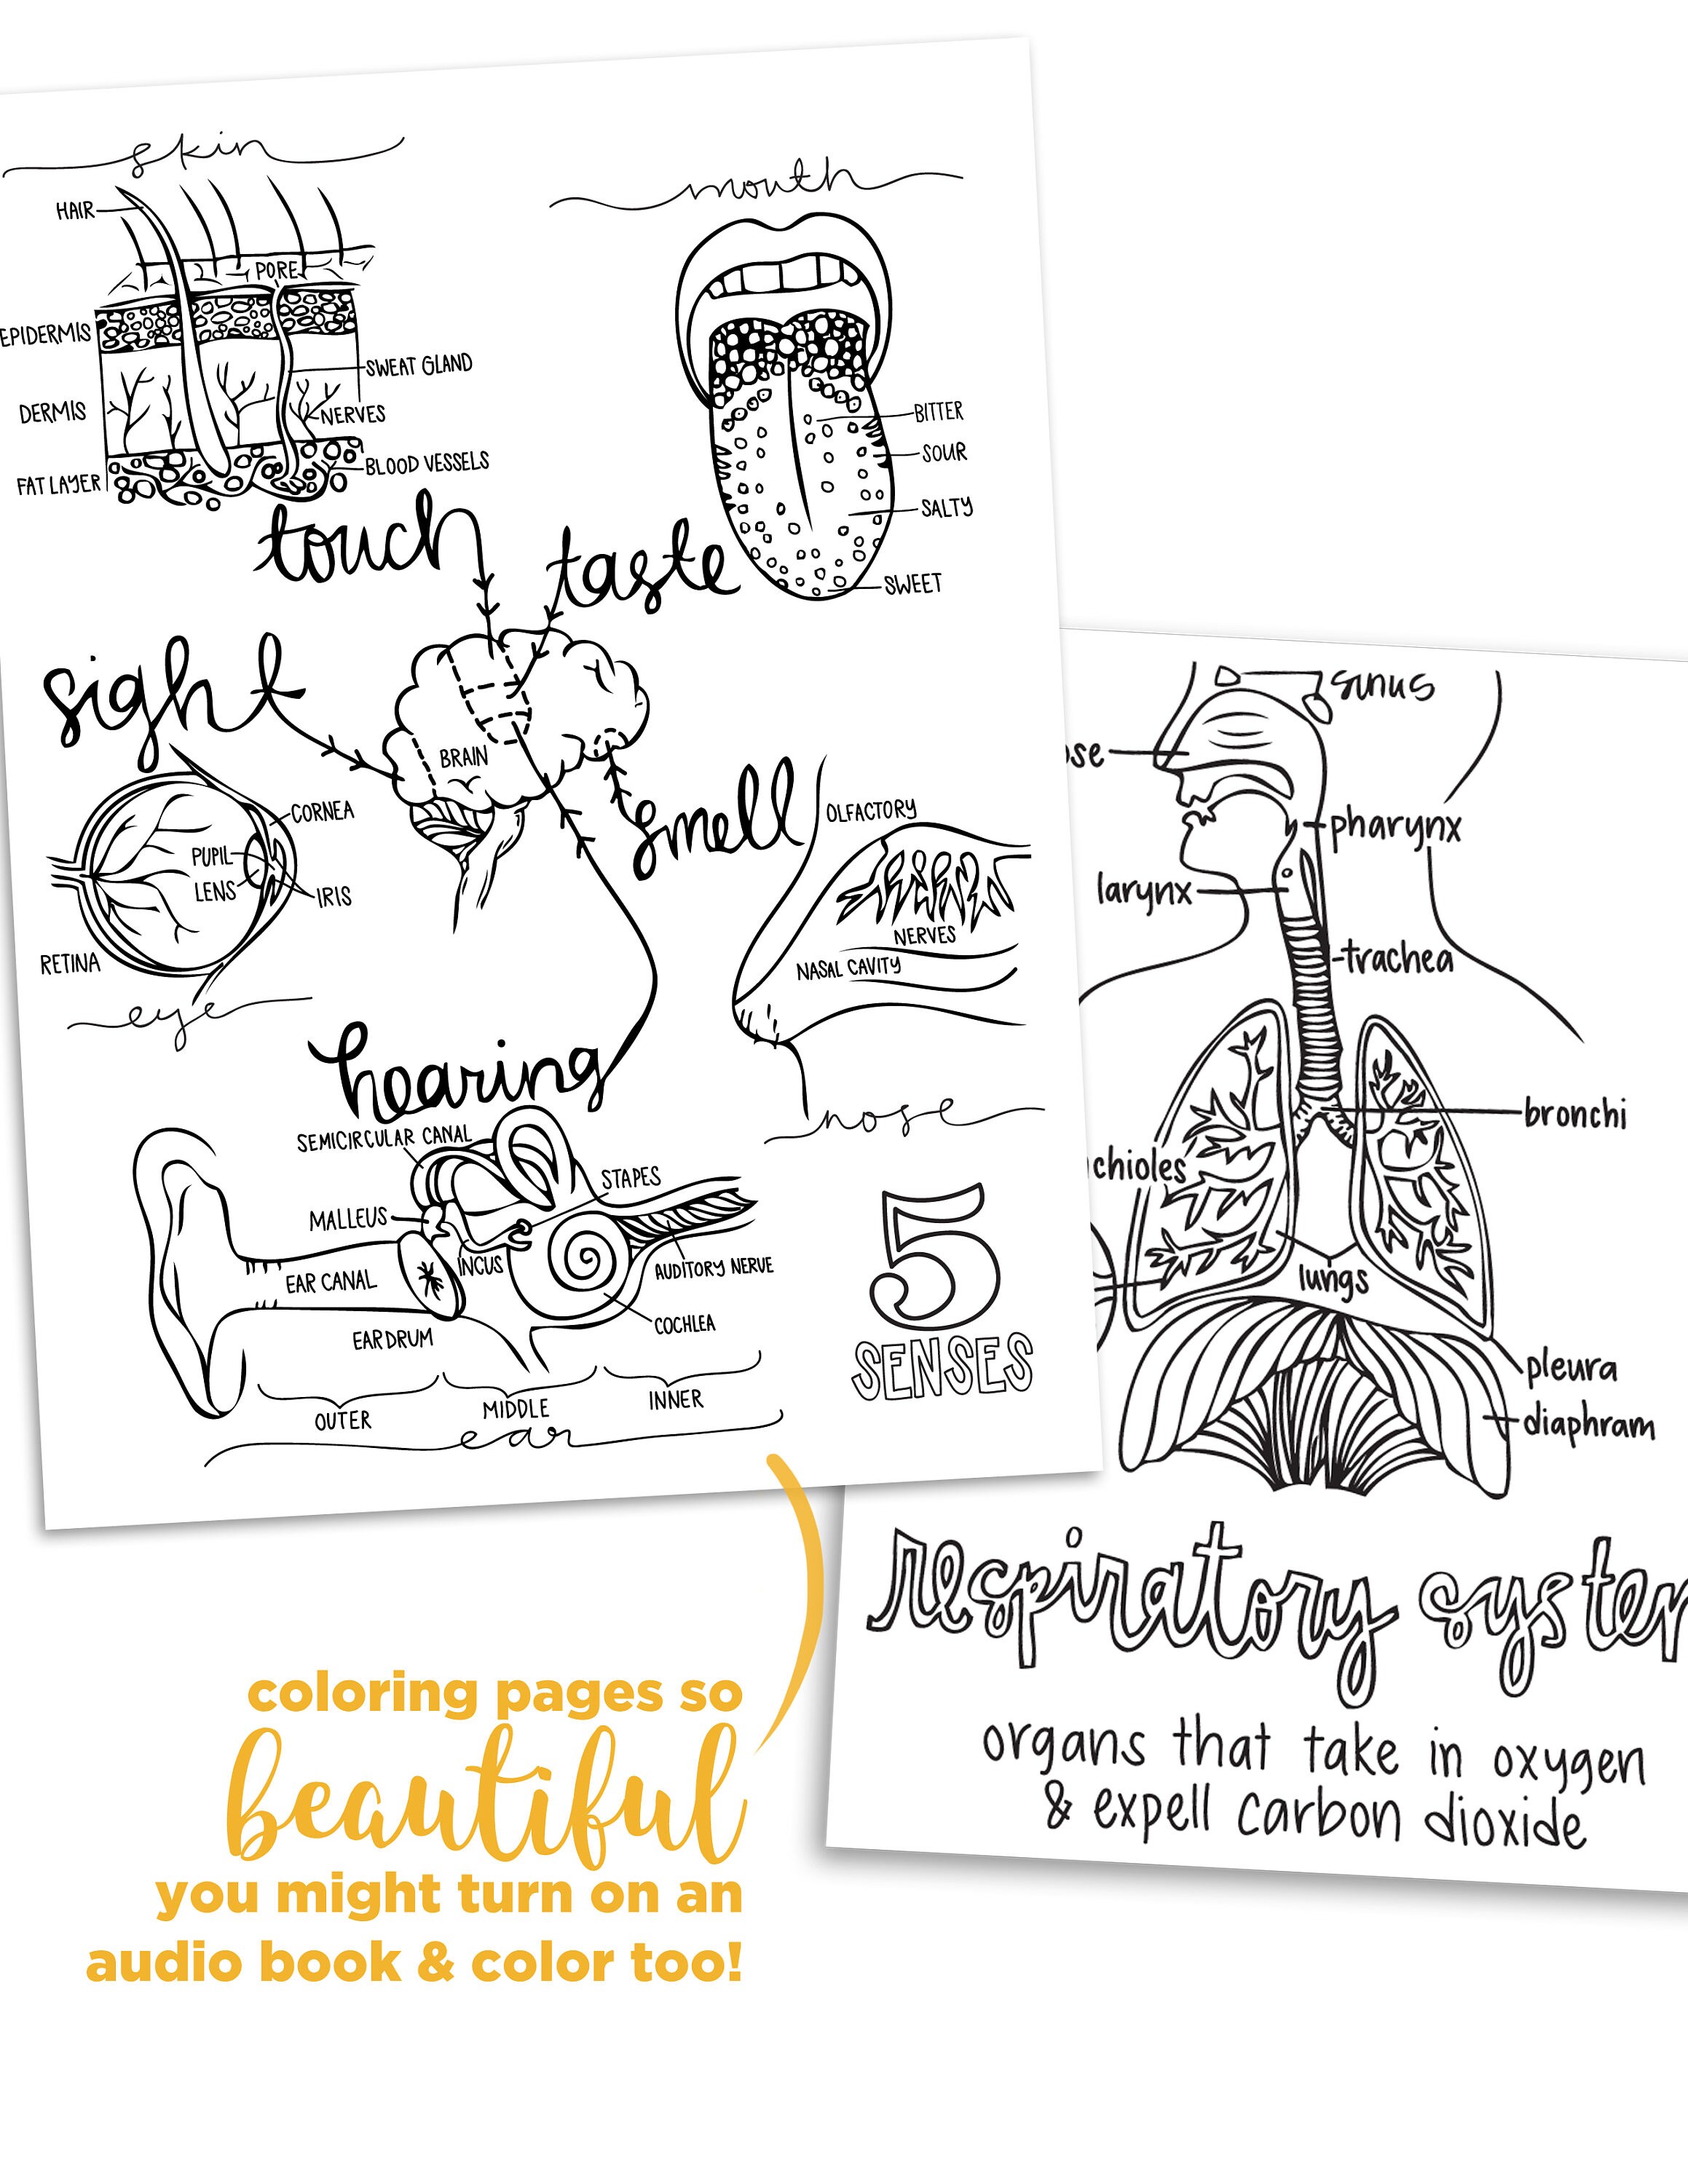 skin
HAIR
PORE
EPIDERMIS
SWEAT GLAND
DERMIS
NERVES
FAT LAYER
BLOOD VESSELS
touch
mouth
BITTER
SOUR
SALTY
SWEET
taste
sight
BRAIN
CORNEA
PUPIL
LENS
IRIS
RETINA
eye
smell
OLFACTORY
NERVES
NASAL CAVITY
nose
hearing
SEMICIRCULAR CANAL
STAPES
MALLEUS
INCUS
EAR CANAL
AUDITORY NERVE
COCHLEA
EARDRUM
OUTER
MIDDLE
INNER
ear
5
SENSES
sinus
se
pharynx
larynx
trachea
bronchi
chioles
lungs
pleura
diaphram
respiratory system
organs that take in oxygen
& expell carbon dioxide
coloring pages so
beautiful
you might turn on an
audio book & color too!